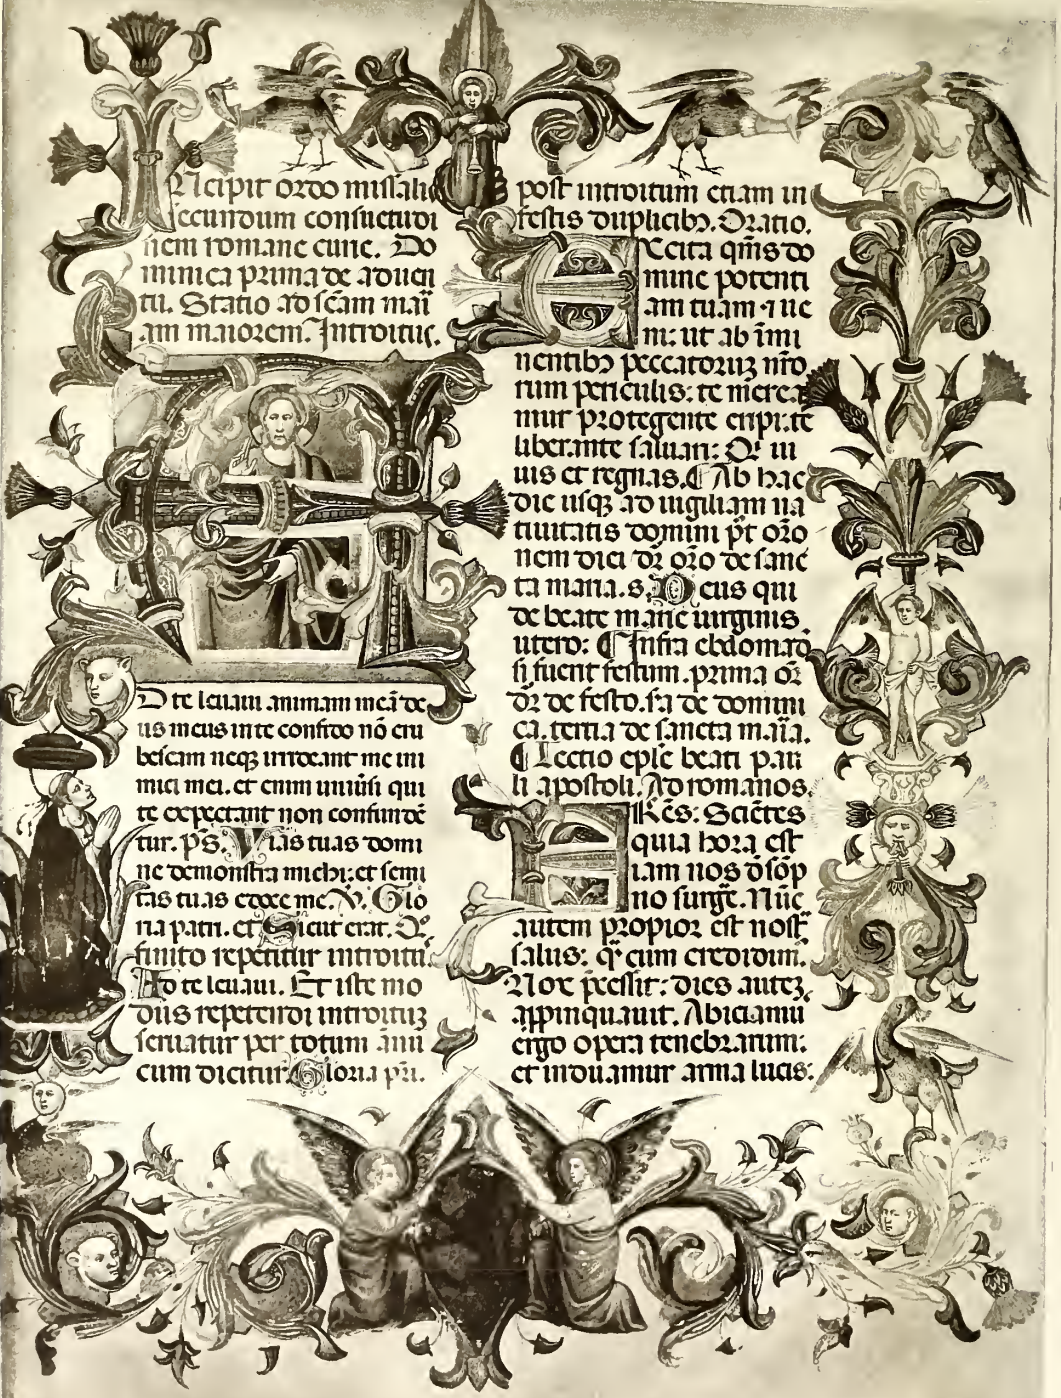 Incipit ordo missalis
secundum consuetudi
nem romane curie. Do
minica prima de aduen
tu. Statio ad scam mari
am maiorem. Introitus.
AD te leuaui animam meā de
us meus in te confido nō eru
bescam neqꝫ irrideant me ini
mici mei. et enim uniūsi qui
te expectant non confundē
tur. p̄s. Vias tuas domi
ne demonstra michi: et semi
tas tuas edoce me. V. Glo
ria patri. et Sicut erat. Quo
finito repetitur introitus
Ad te leuaui. Et iste mo
dus repetendi introituꝫ
seruatur per totum annū
cum dicitur Gloria pr̄i.
post introitum etiam in
festis duplicibꝫ. Oratio.
EXcita qm̄s do
mine potenti
am tuam ⁊ ue
ni: ut ab īmi
nentibꝫ peccatoruꝫ nr̄o
rum periculis: te merea
mur protegente eripi. te
liberante saluari: Qui ui
uis et regnas. Ab hac
die usqꝫ ad uigiliam na
tiuitatis domini p̄t oro
nem diei dr̄ oro de sanc
ta maria. s. Deus qui
de beate marie uirginis
utero: Infra ebdomadā
si fuerit festum. prima or̄
dr̄ de festo. sa de domini
ca. tertia de sancta maria.
Lectio epl̄e beati pau
li apostoli. Ad romanos.
FRēs: Scientes
quia hora est
iam nos d̄ sop̄
no surge. Nūc
autem propior est nostra
salus: q̄ cum credidim.
Nox p̄cessit: dies auteꝫ
appinquauit. Abiciamus
ergo opera tenebrarum:
et induamur arma lucis: